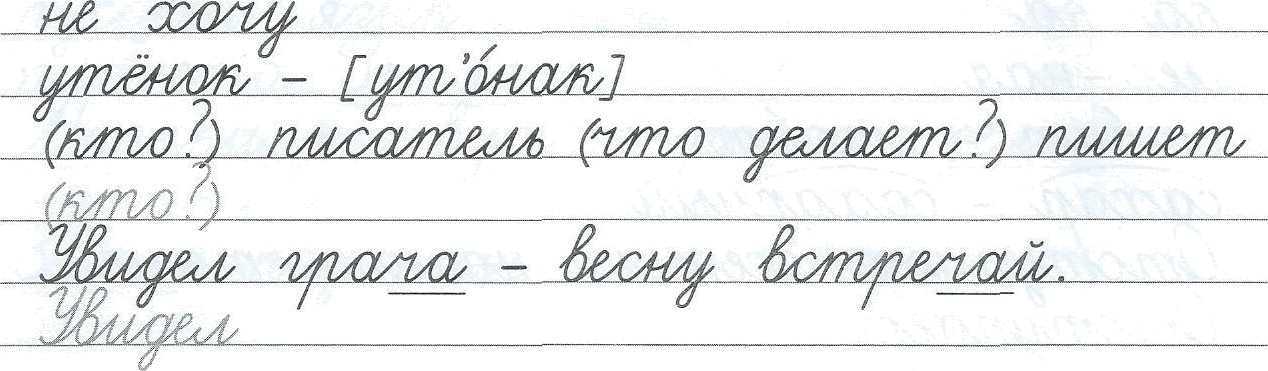 не хочу
утёнок – [ут’о́нак]
(кто?) писатель (что делает?) пишет
(кто?)
Увидел грача – весну встречай.
Увидел